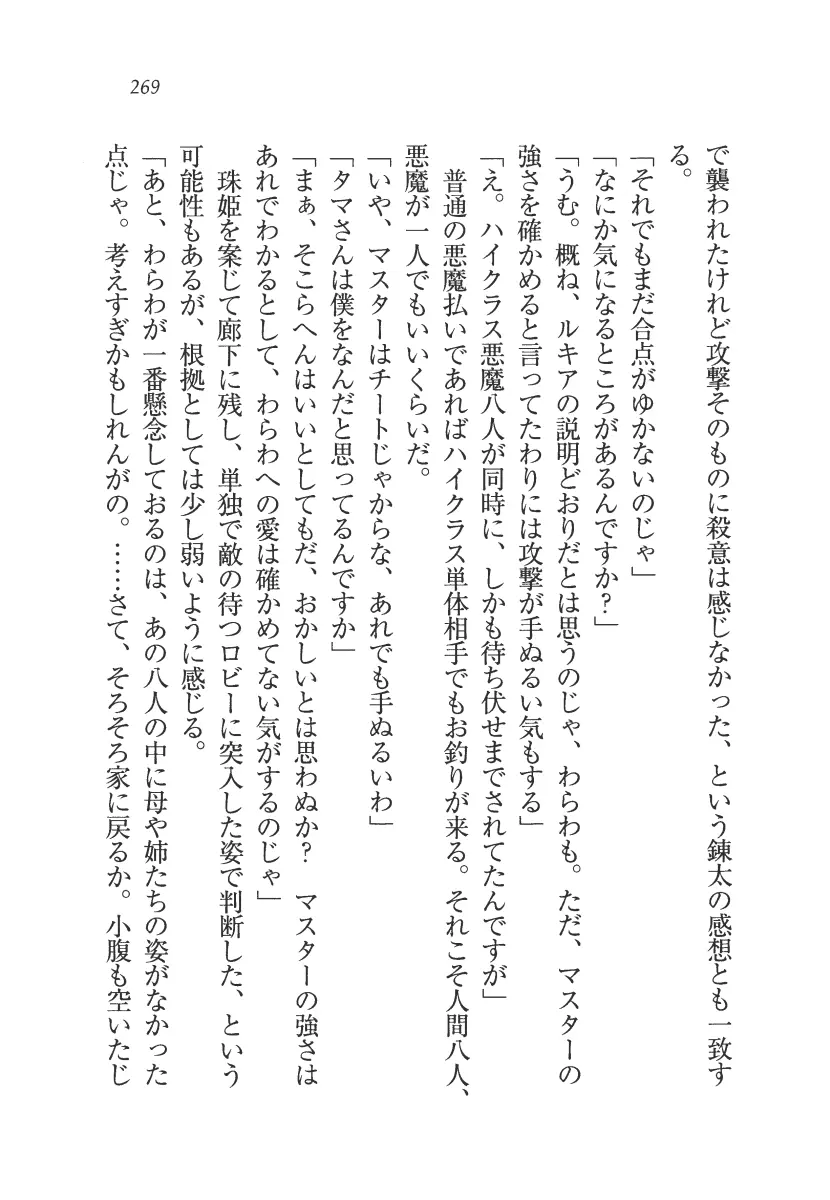 269
で襲われたけれど攻撃そのものに殺意は感じなかった、という錬太の感想とも一致す
る。
「それでもまだ合点がゆかないのじゃ」
「なにか気になるところがあるんですか?」
「うむ。概ね、ルキアの説明どおりだとは思うのじゃ、わらわも。ただ、マスターの
強さを確かめると言ってたわりには攻撃が手ぬるい気もする」
「え。ハイクラス悪魔八人が同時に、しかも待ち伏せまでされてたんですが」
普通の悪魔払いであればハイクラス単体相手でもお釣りが来る。それこそ人間八人、
悪魔が一人でもいいくらいだ。
「いや、マスターはチートじゃからな、あれでも手ぬるいわ」
「タマさんは僕をなんだと思ってるんですか」
「まぁ、そこらへんはいいとしてもだ、おかしいとは思わぬか? マスターの強さは
あれでわかるとして、わらわへの愛は確かめてない気がするのじゃ」
珠姫を案じて廊下に残し、単独で敵の待つロビーに突入した姿で判断した、という
可能性もあるが、根拠としては少し弱いように感じる。
「あと、わらわが一番懸念しておるのは、あの八人の中に母や姉たちの姿がなかった
点じゃ。考えすぎかもしれんがの。……さて、そろそろ家に戻るか。小腹も空いたじ